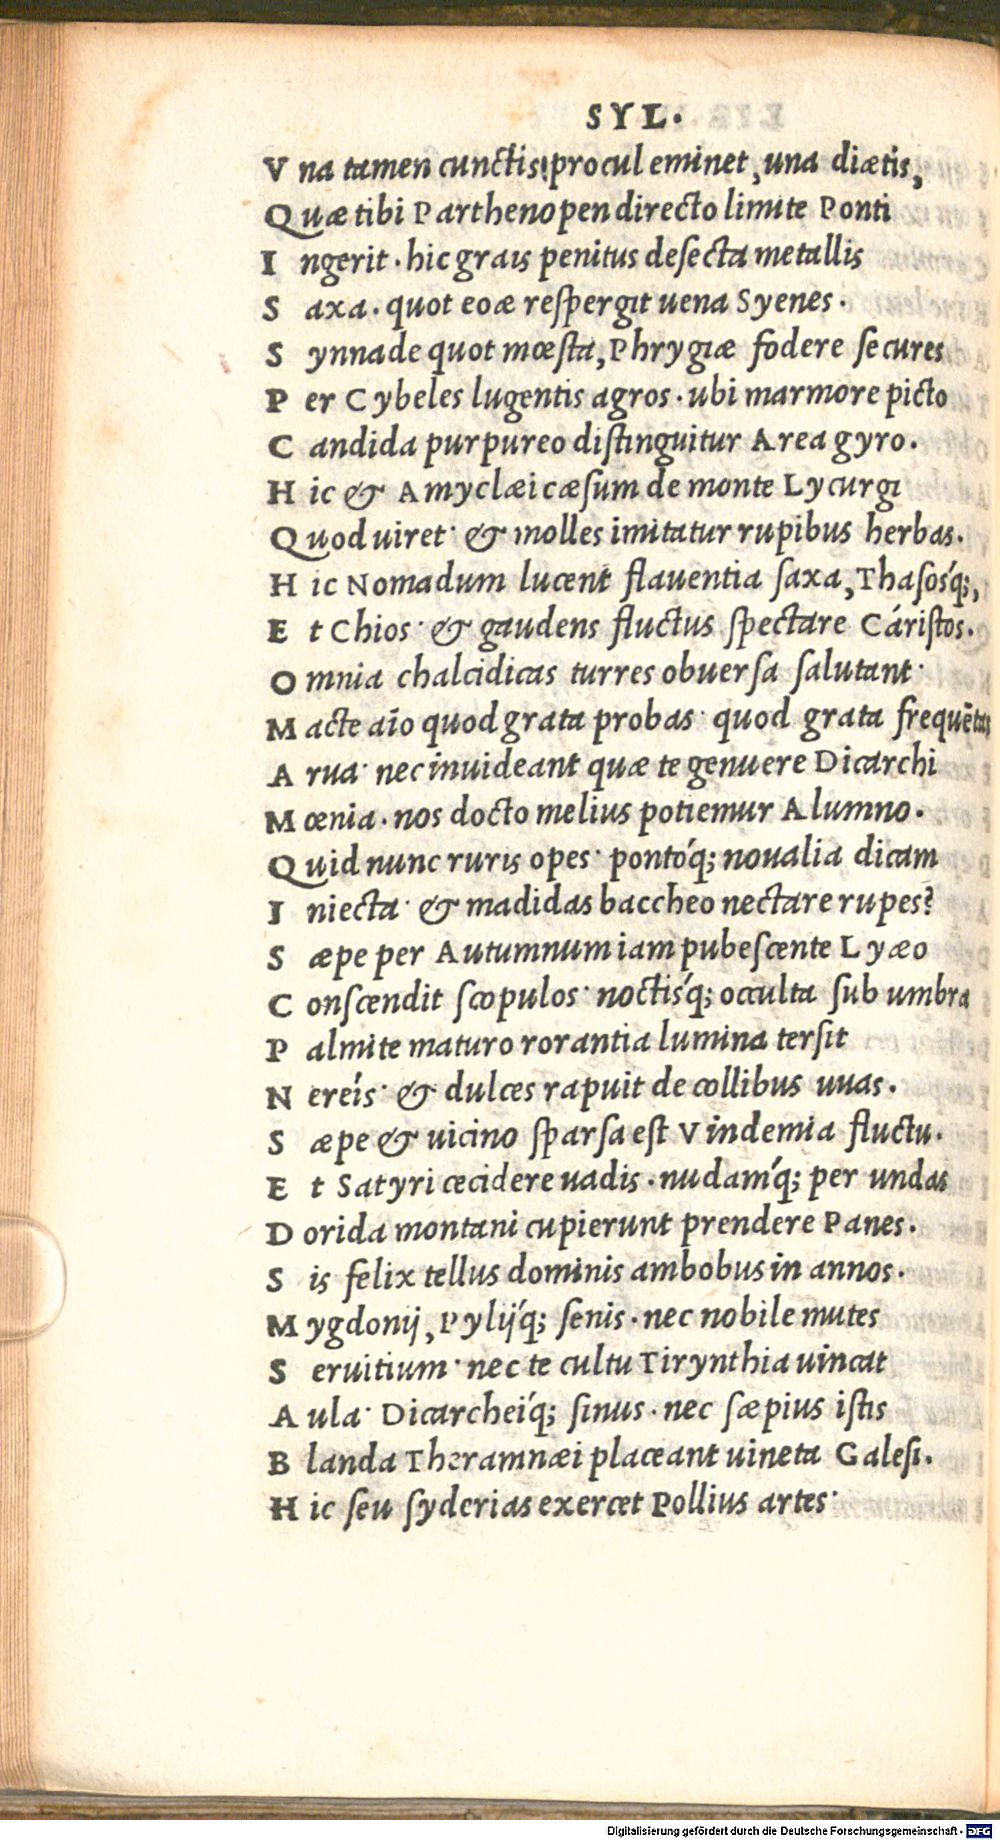 SYL.
V na tamen cunctis procul eminet, una diætis,
Quæ tibi Parthenopen directo limite Ponti
I ngerit. hic grais penitus desecta metallis
S axa. quot eoæ respergit uena Syenes.
S ynnade quot mœsta, Phrygiæ fodere secures
P er Cybeles lugentis agros. ubi marmore picto
C andida purpureo distinguitur Area gyro.
H ic & Amyclæi cæsum de monte Lycurgi
Quod uiret· & molles imitatur rupibus herbas.
H ic Nomadum lucent flauentia saxa, Thasosq́;,
E t Chios· & gaudens fluctus spectare Cáristos.
O mnia chalcidicas turres obuersa salutant·
M acte aĩo quod grata probas· quod grata frequẽtas
A rua· nec inuideant quæ te genuere Dicarchi
M œnia. nos docto melius potiemur Alumno.
Quid nunc ruris opes· pontóq; noualia dicam
I niecta· & madidas baccheo nectare rupes?
S æpe per Autumnum iam pubescente Lyæo
C onscendit scopulos· noctisq́; occulta sub umbra
P almite maturo rorantia lumina tersit
N ereís· & dulces rapuit de collibus uuas.
S æpe & uicino sparsa est Vindemia fluctu.
E t Satyri cecidere uadis. nudamq́; per undas
D orida montani cupierunt prendere Panes.
S is felix tellus dominis ambobus in annos.
M ygdonij, Pylijq́; senis. nec nobile mutes
S eruitium· nec te cultu Tirynthia uincat
A ula· Dicarcheíq; sinus. nec sæpius istis
B landa Theramnæi placeant uineta Galesi.
H ic seu syderias exercet Pollius artes·
Digitalisierung gefördert durch die Deutsche Forschungsgemeinschaft - DFG